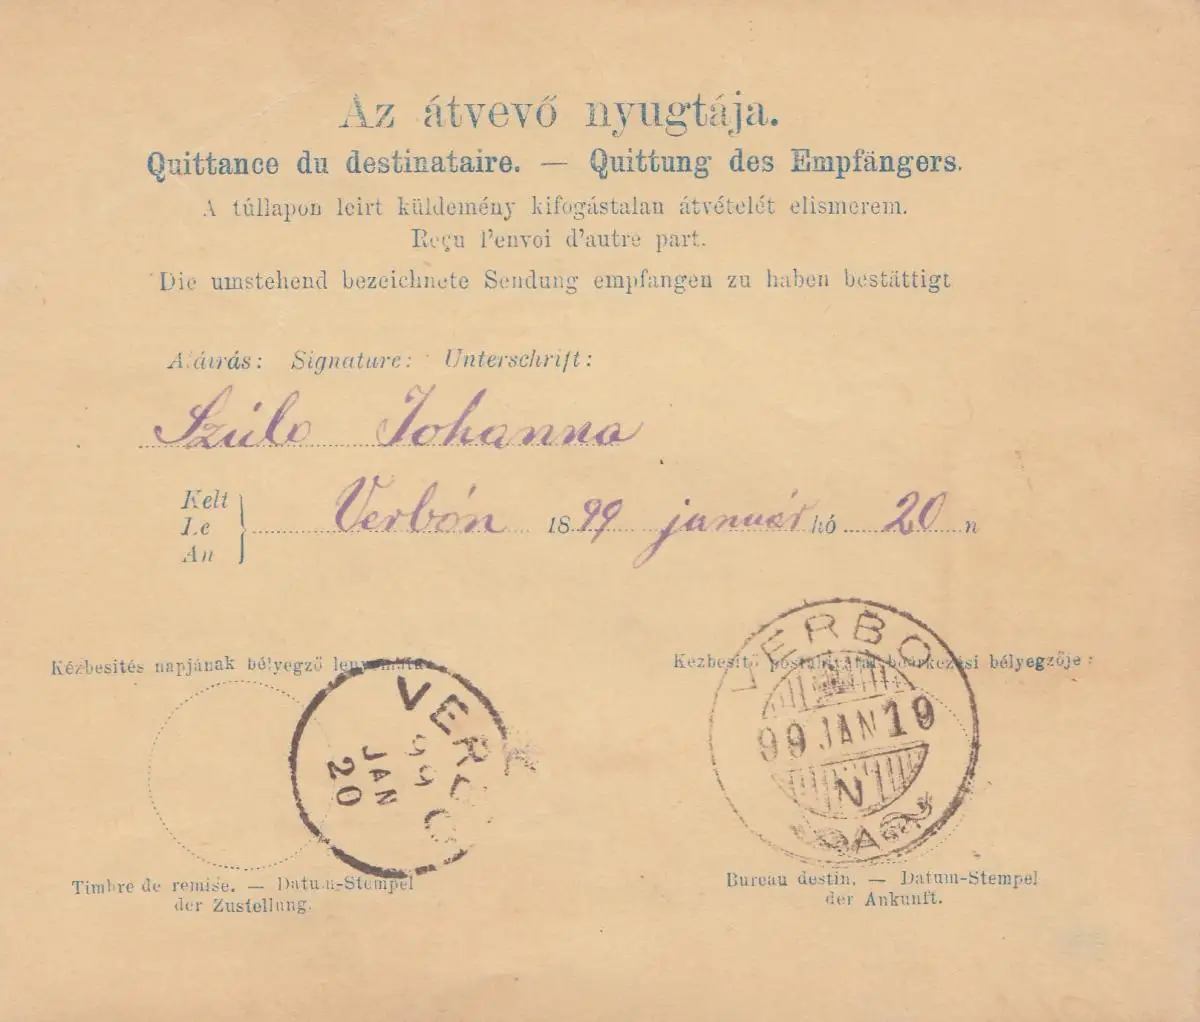 Az átvevő nyugtája.
Quittance du destinataire. — Quittung des Empfängers.
A túllapon leirt küldemény kifogástalan átvételét elismerem.
Reçu l'envoi d'autre part.
Die umstehend bezeichnete Sendung empfangen zu haben bestättigt
Aláirás: Signature: Unterschrift:
Szúlo Johanna
Kelt
Le
An
Verbón 1899 január hó 20 n
Kézbesités napjának bélyegző lenyomata
Kézbesitő postahivatal beérkezési bélyegzője:
VERBÓ
99
JAN
20
VERBO
99 JAN 19
N
A
Timbre de remise. — Datum-Stempel
der Zustellung.
Bureau destin. — Datum-Stempel
der Ankunft.